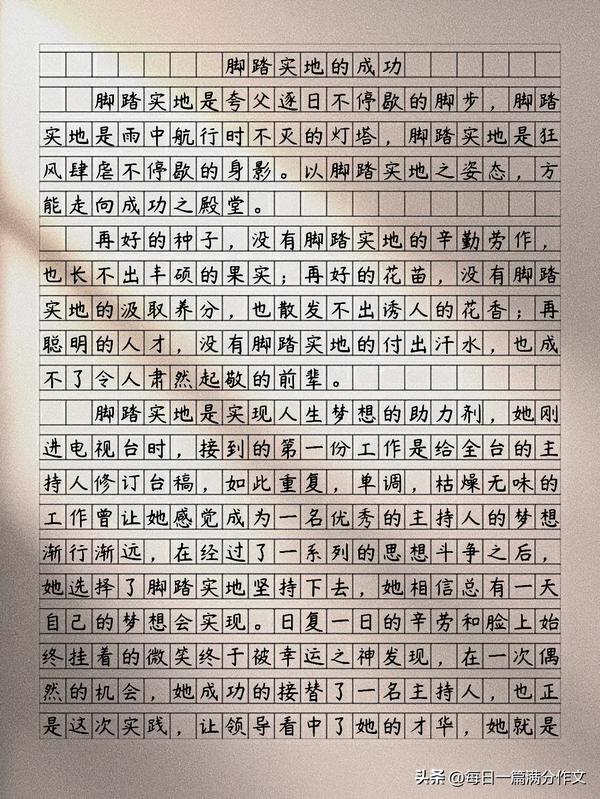 脚踏实地的成功
脚踏实地是夸父逐日不停歇的脚步，脚踏
实地是雨中航行时不灭的灯塔，脚踏实地是狂
风肆虐不停歇的身影。以脚踏实地之姿态，方
能走向成功之殿堂。
再好的种子，没有脚踏实地的辛勤劳作，
也长不出丰硕的果实；再好的花苗，没有脚踏
实地的汲取养分，也散发不出诱人的花香；再
聪明的人才，没有脚踏实地的付出汗水，也成
不了令人肃然起敬的前辈。
脚踏实地是实现人生梦想的助力剂，她刚
进电视台时，接到的第一份工作是给全台的主
持人修订台稿，如此重复，单调，枯燥无味的
工作曾让她感觉成为一名优秀的主持人的梦想
渐行渐远，在经过了一系列的思想斗争之后，
她选择了脚踏实地坚持下去，她相信总有一天
自己的梦想会实现。日复一日的辛劳和脸上始
终挂着的微笑终于被幸运之神发现，在一次偶
然的机会，她成功的接替了一名主持人，也正
是这次实践，让领导看中了她的才华，她就是
头条 @每日一篇满分作文